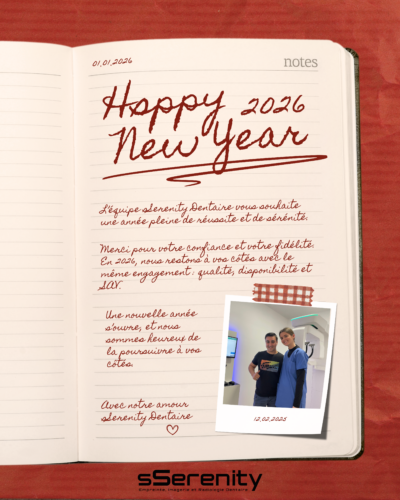 01.01.2026
notes
Happy 2026
New Year
L'équipe sSerenity Dentaire vous souhaite
une année pleine de réussite et de sérénité.
Merci pour votre confiance et votre fidélité.
En 2026, nous restons à vos côtés avec le
même engagement : qualité, disponibilité et
SAV.
Une nouvelle année
s'ouvre, et nous
sommes heureux de
la poursuivre à vos
côtés.
Avec notre amour
sSerenity Dentaire
12.02.2025
sSerenity